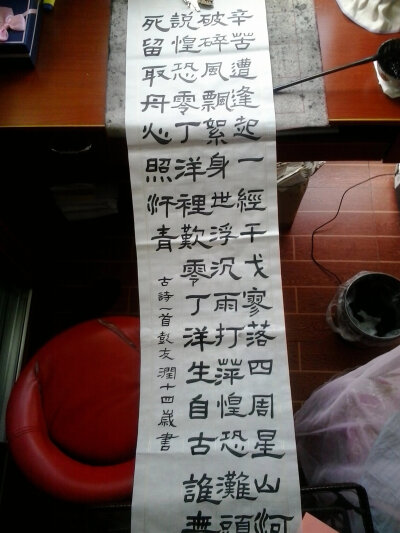 辛苦遭逢起一經干戈寥落四周星山河
破碎風飄絮身世浮沉雨打萍惶恐灘頭
說惶恐零丁洋裡歎零丁洋生自古誰無
死留取丹心照汗青
古詩一首彭友潤十四歲書